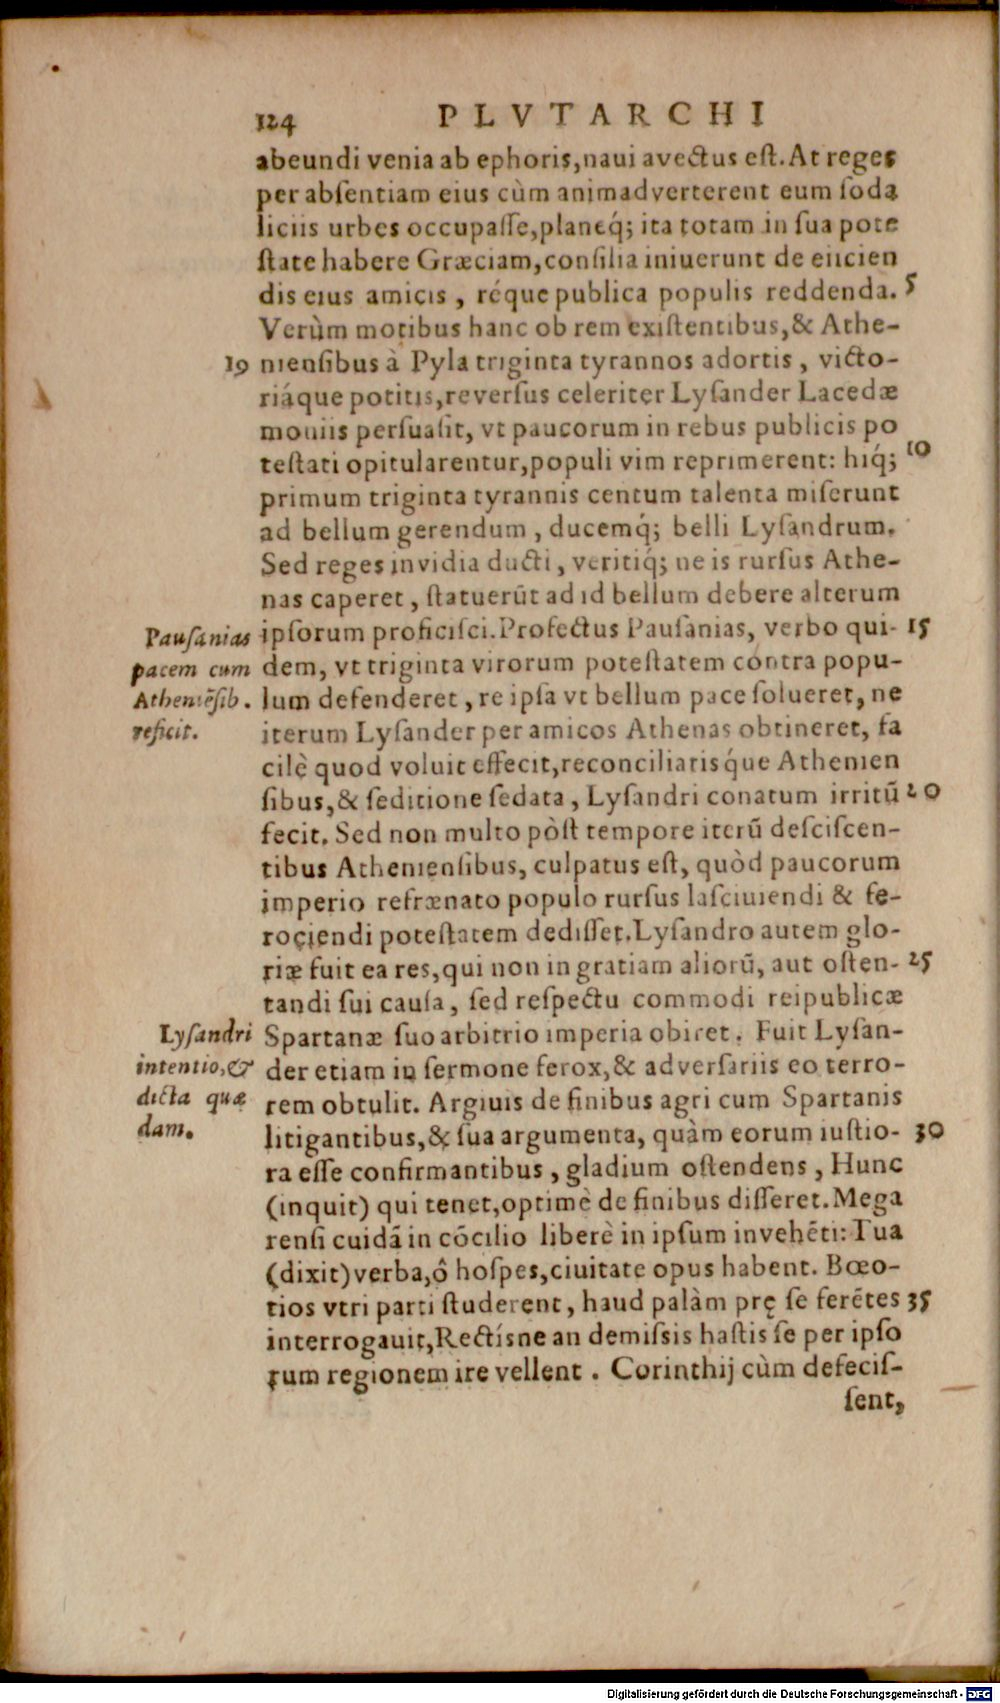 124 PLVTARCHI
abeundi venia ab ephoris, naui avectus eſt. At reges
per abſentiam eius cùm animadverterent eum ſoda
liciis urbes occupaſſe, planeq́; ita totam in ſua pote
ſtate habere Græciam, conſilia iniuerunt de eiicien
dis eius amicis, réque publica populis reddenda. 5
Verùm motibus hanc ob rem exiſtentibus, & Athe-
19 nienſibus à Pyla triginta tyrannos adortis, victo-
riáque potitis, reverſus celeriter Lyſander Lacedæ
moniis perſuaſit, vt paucorum in rebus publicis po
teſtati opitularentur, populi vim reprimerent: hiq́; 10
primum triginta tyrannis centum talenta miſerunt
ad bellum gerendum, ducemq́; belli Lyſandrum.
Sed reges invidia ducti, veritiq́; ne is rurſus Athe-
nas caperet, ſtatuerūt ad id bellum debere alterum
ipſorum proficiſci. Profectus Pauſanias, verbo qui- 15
dem, vt triginta virorum poteſtatem contra popu-
lum defenderet, re ipſa vt bellum pace ſolueret, ne
iterum Lyſander per amicos Athenas obtineret, fa
cilè quod voluit effecit, reconciliatisq́ue Athenien
ſibus, & ſeditione ſedata, Lyſandri conatum irritū 20
fecit. Sed non multo pòſt tempore iterū deſciſcen-
tibus Athenienſibus, culpatus eſt, quòd paucorum
imperio refrænato populo rurſus laſciuiendi & fe-
rociendi poteſtatem dediſſet. Lyſandro autem glo-
riæ fuit ea res, qui non in gratiam aliorū, aut oſten- 25
tandi ſui cauſa, ſed reſpectu commodi reipublicæ
Spartanæ ſuo arbitrio imperia obiret. Fuit Lyſan-
der etiam in ſermone ferox, & adverſariis eo terro-
rem obtulit. Argiuis de finibus agri cum Spartanis
litigantibus, & ſua argumenta, quàm eorum iuſtio- 30
ra eſſe confirmantibus, gladium oſtendens, Hunc
(inquit) qui tenet, optimè de finibus differet. Mega
renſi cuidā in cōcilio liberè in ipſum invehēti: Tua
(dixit) verba, ô hoſpes, ciuitate opus habent. Bœo-
tios vtri parti ſtuderent, haud palàm prę ſe ferētes 35
interrogauit, Rectísne an demiſsis haſtis ſe per ipſo
rum regionem ire vellent. Corinthij cùm defeciſ-
ſent,
Pauſanias
pacem cum
Atheniēſib.
reficit.
Lyſandri
intentio, &
dicta quæ
dam.
Digitalisierung gefördert durch die Deutsche Forschungsgemeinschaft - DFG